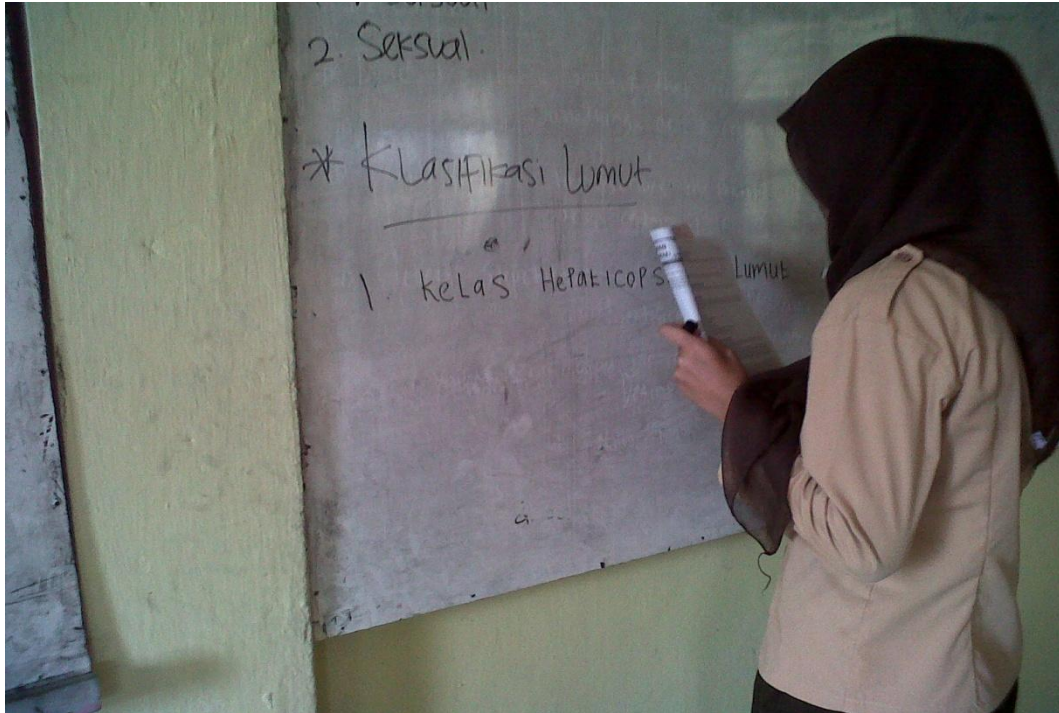 2. Seksual.
* Klasifikasi Lumut
1. Kelas Hepaticops Lumut
a. --